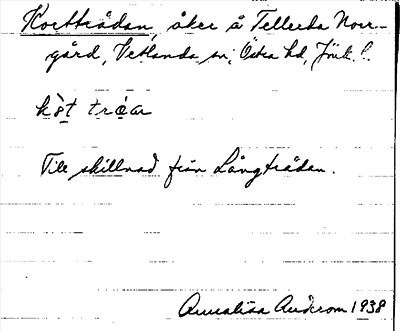 Korttrådan, åker å Tellerda Norr-
gård, Vetlanda sn, Östra hd, Jönk. l.
trȧar
Till skillnad från Långtrådan.
Annalisa Anderson 1938